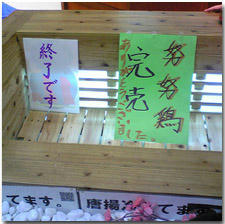 努努鶏
完売
ありがとうございました
終了です
てます。
唐揚
てます。